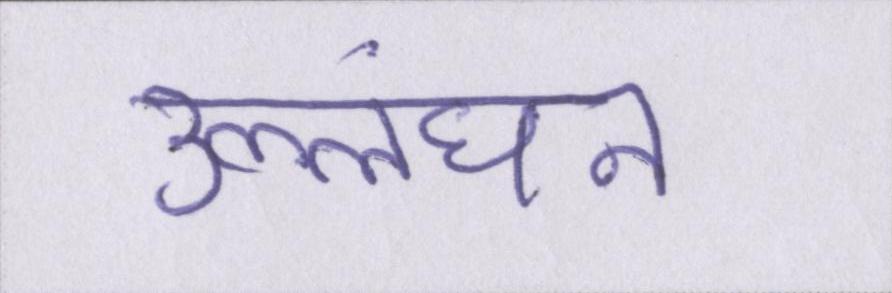 उल्लंघन